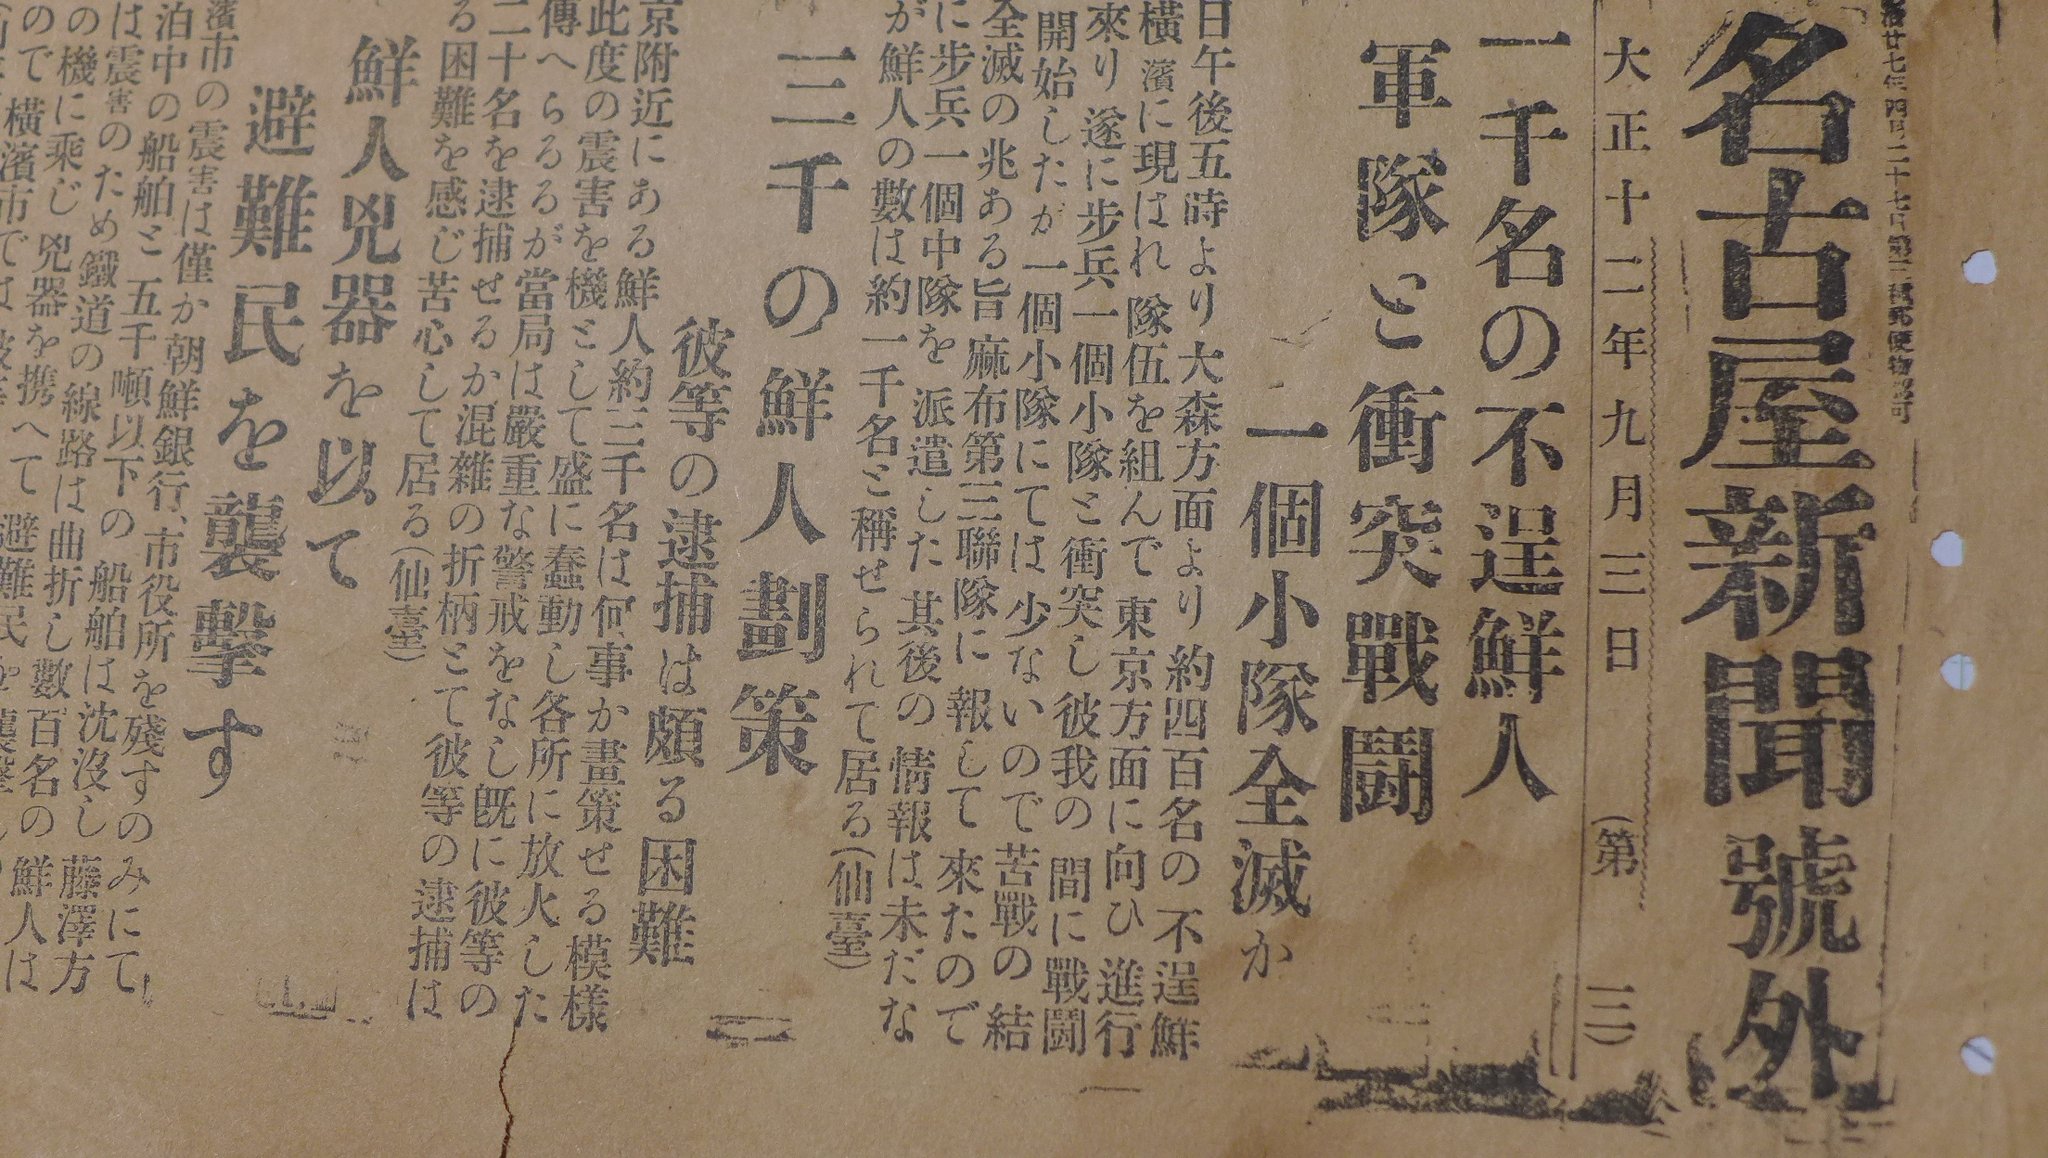 名古屋新聞號外
大正十二年九月三日
(第三)
一千名の不逞鮮人
軍隊と衝突戰鬪
一個小隊全滅か
日午後五時より大森方面より約四百名の不逞鮮
橫濱に現はれ隊伍を組んで東京方面に向ひ進行
來り遂に步兵一個小隊と衝突し彼我の間に戰鬪
開始したが一個小隊にては少ないので苦戰の結
全滅の兆ある旨麻布第三聯隊に報して來たので
に步兵一個中隊を派遣した其後の情報は未だな
が鮮人の數は約一千名と稱せられて居る(仙臺)
三千の鮮人劃策
彼等の逮捕は頗る困難
京附近にある鮮人約三千名は何事か畫策せる模樣
此度の震害を機として盛に蠢動し各所に放火した
傳へらるるが當局は嚴重な警戒をなし旣に彼等の
二十名を逮捕せるか混雜の折柄とて彼等の逮捕は
る困難を感じ苦心して居る(仙臺)
鮮人兇器を以て
避難民を襲擊す
濱市の震害は僅か朝鮮銀行、市役所を殘すのみにて
泊中の船舶と五千噸以下の船舶は沈沒し藤澤方
は震害のため鐵道の線路は曲折し數百名の鮮人は
の機に乘じ兇器を携へて避難民を襲擊し
ので橫濱市では